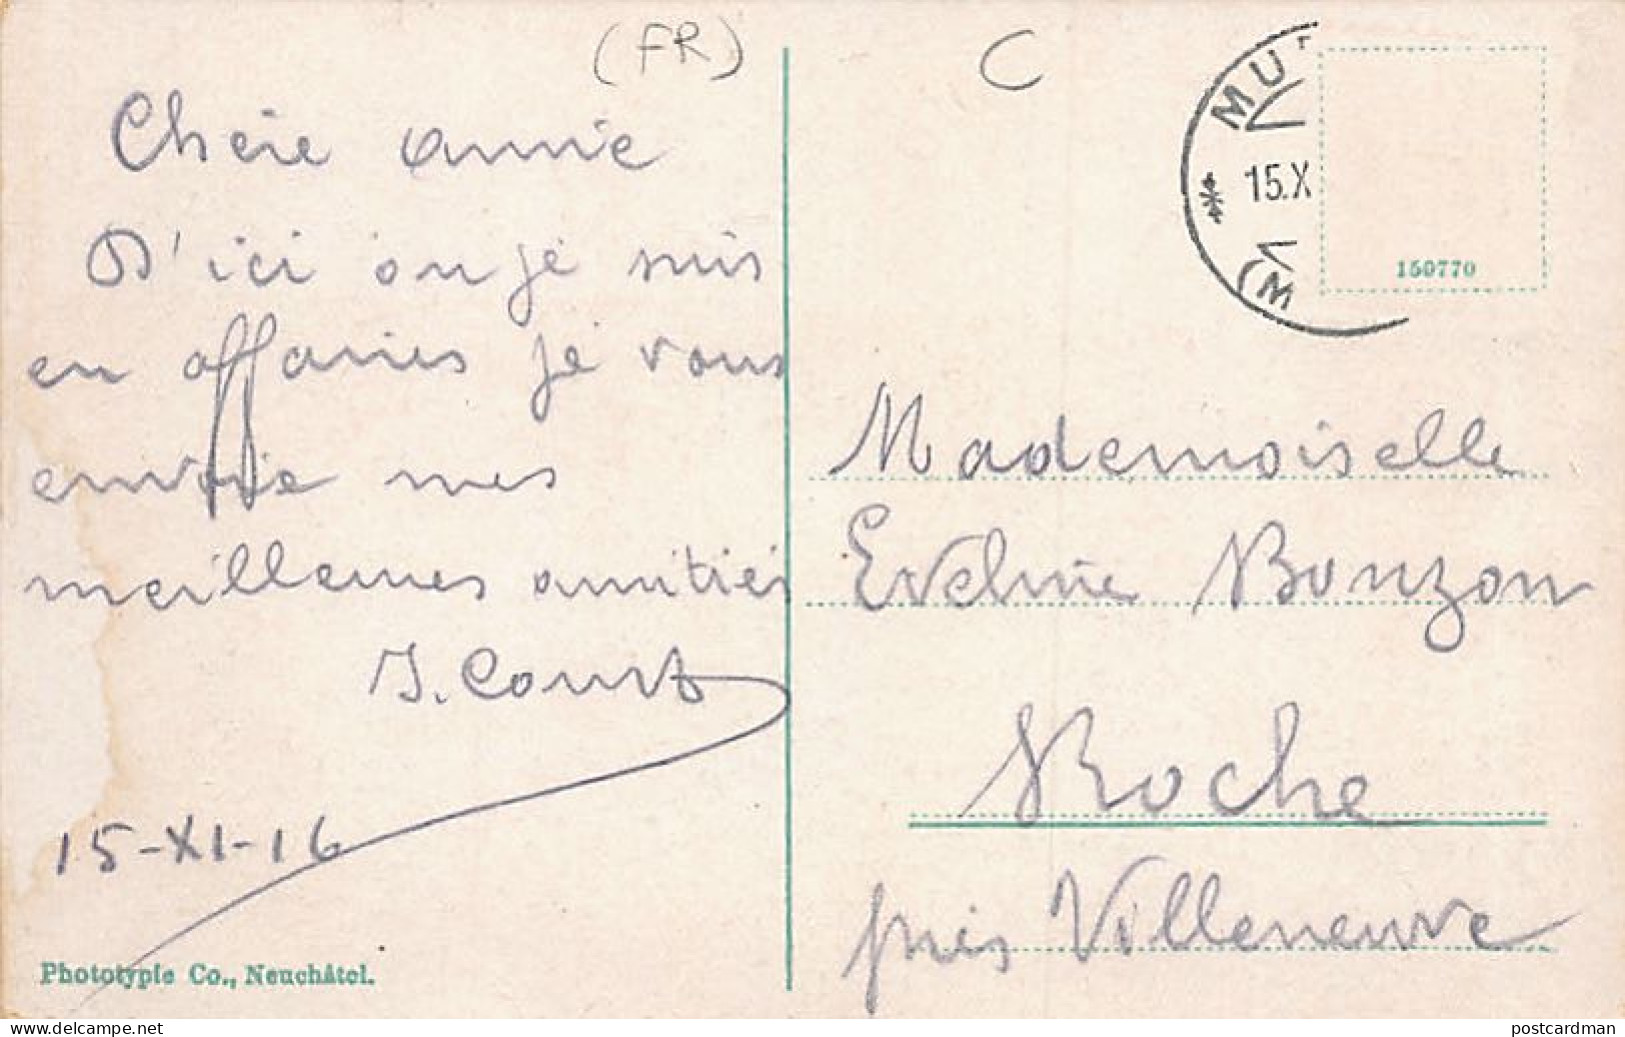 (FR)
C
Chère Annie
D'ici ou je suis
en affaires je vous
envoie mes
meilleures amitiés
J. Court
15-XI-16
Phototypie Co., Neuchâtel.
* MU
15.X
150770
Mademoiselle
Eveline Bonzon
Roche
près Villeneuve
www.delcampe.net
postcardman